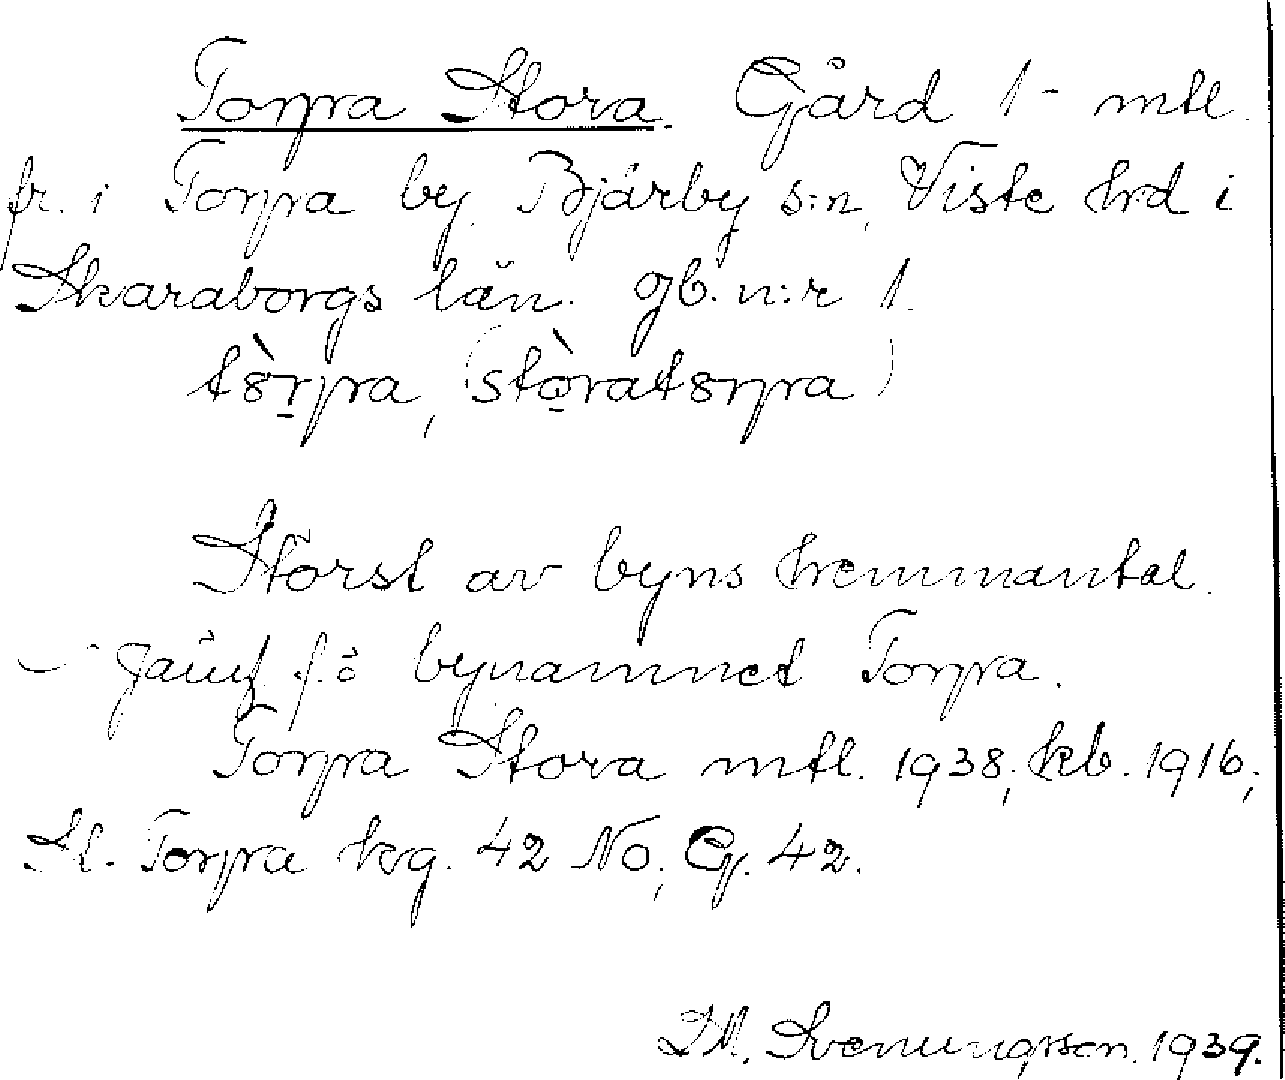 Torpa Stora. Gård 1 - mtl.
fr. i Torpa by, Bjärby s:n, Viste hrd i
Skaraborgs län. gb. n:r 1.
tòrpa, (stòratorpa)
Störst av byns hemmantal.
– Jämf f. ö bynamnet Torpa.
Torpa Stora mtl. 1938; kb. 1916;
St. Torpa hvg. 42 NO; G. 42.
I M. Svenungsson. 1939.